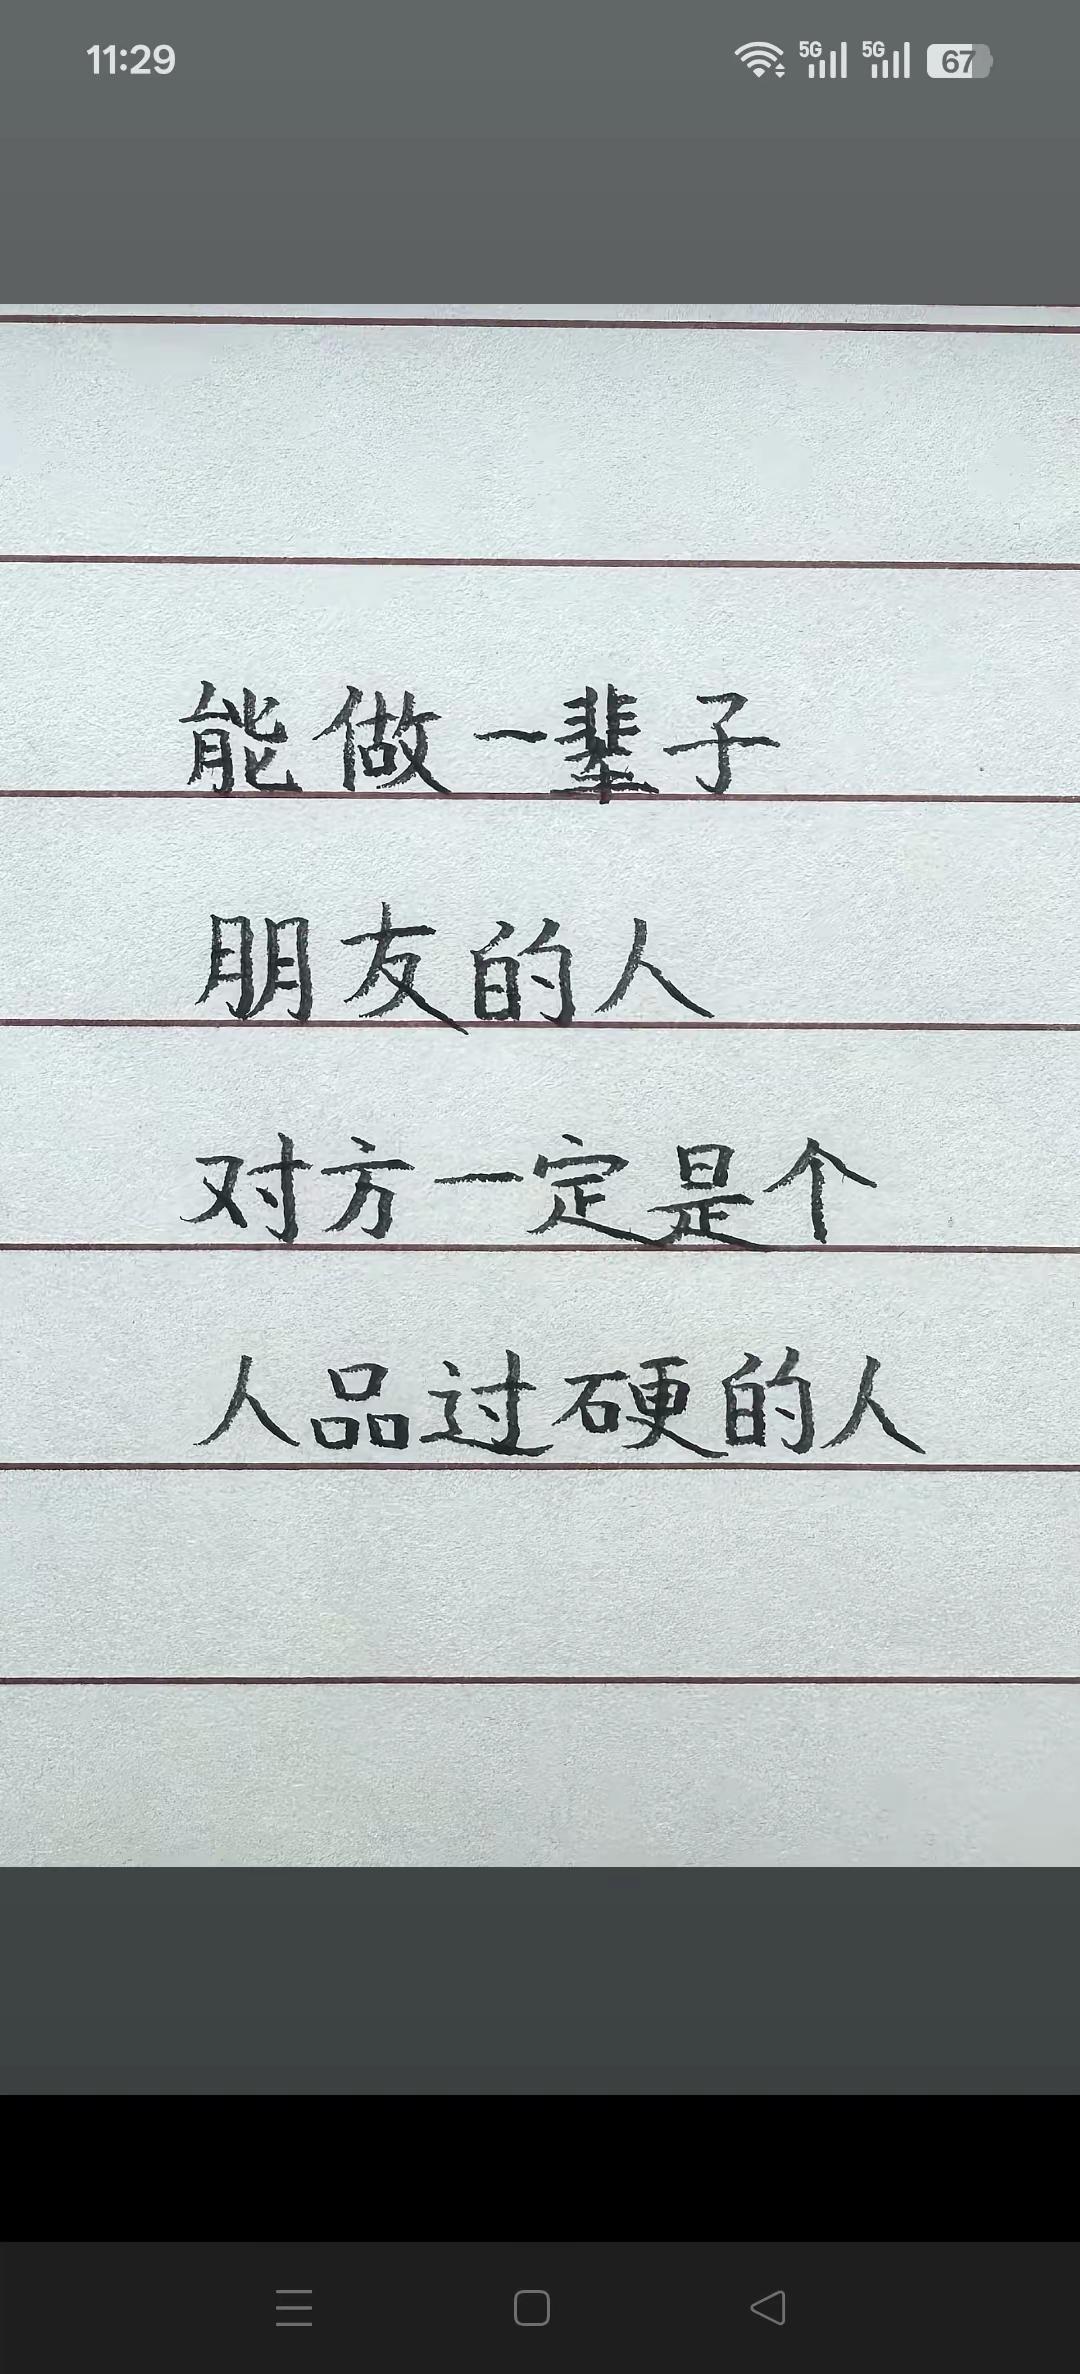 11:29
5G 5G 67
能做一辈子
朋友的人
对方一定是个
人品过硬的人